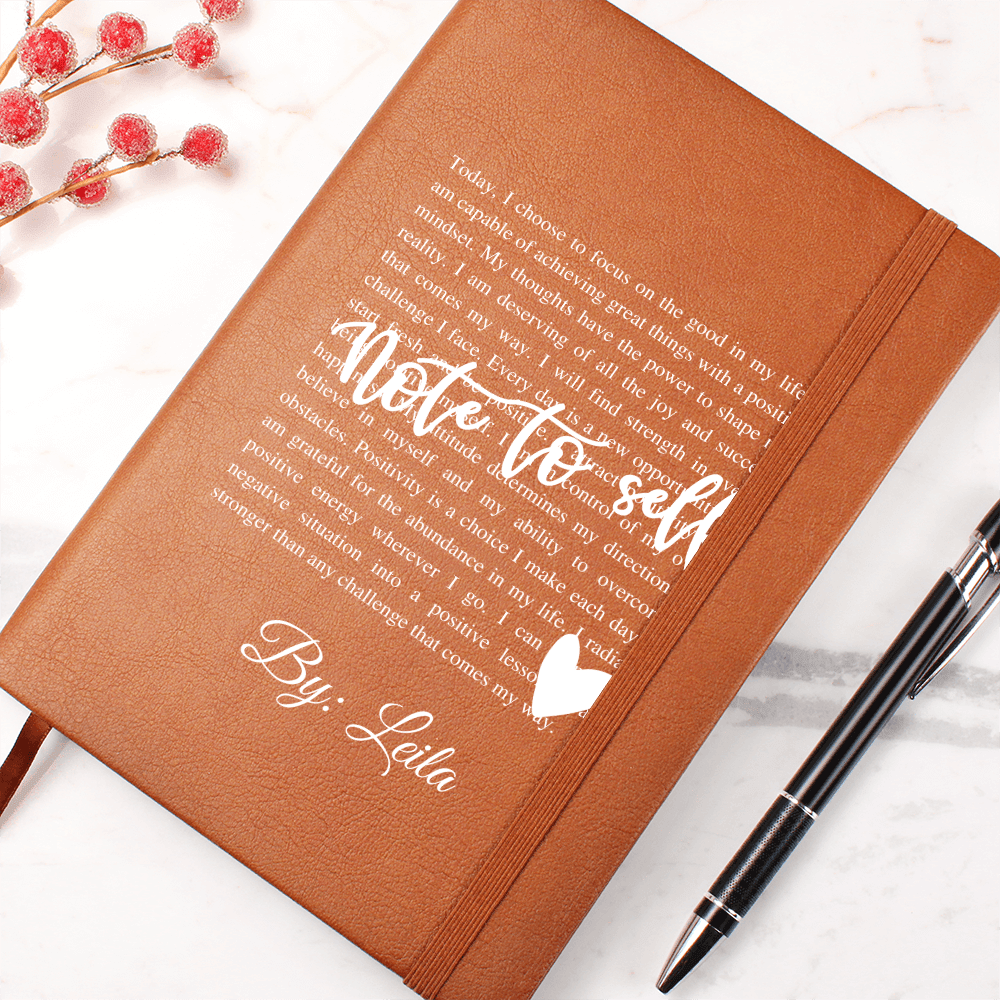 Today, I choose to focus on the good in my life
am capable of achieving great things with a positi
mindset. My thoughts have the power to shape
reality. I am deserving of all the joy and succe
that comes my way. I will find strength in
challenge I face. Every day is a new opport
start fresh
Note to self
happi attitude determines my direction
believe in myself and my ability to overcom
obstacles. Positivity is a choice I make each day
am grateful for the abundance in my life. I radia
positive energy wherever I go. I can
negative situation into a positive lesso
stronger than any challenge that comes my way.
By: Leila